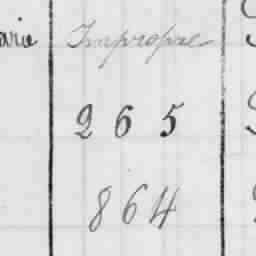 arie Impropre
2 6 5
8 6 4